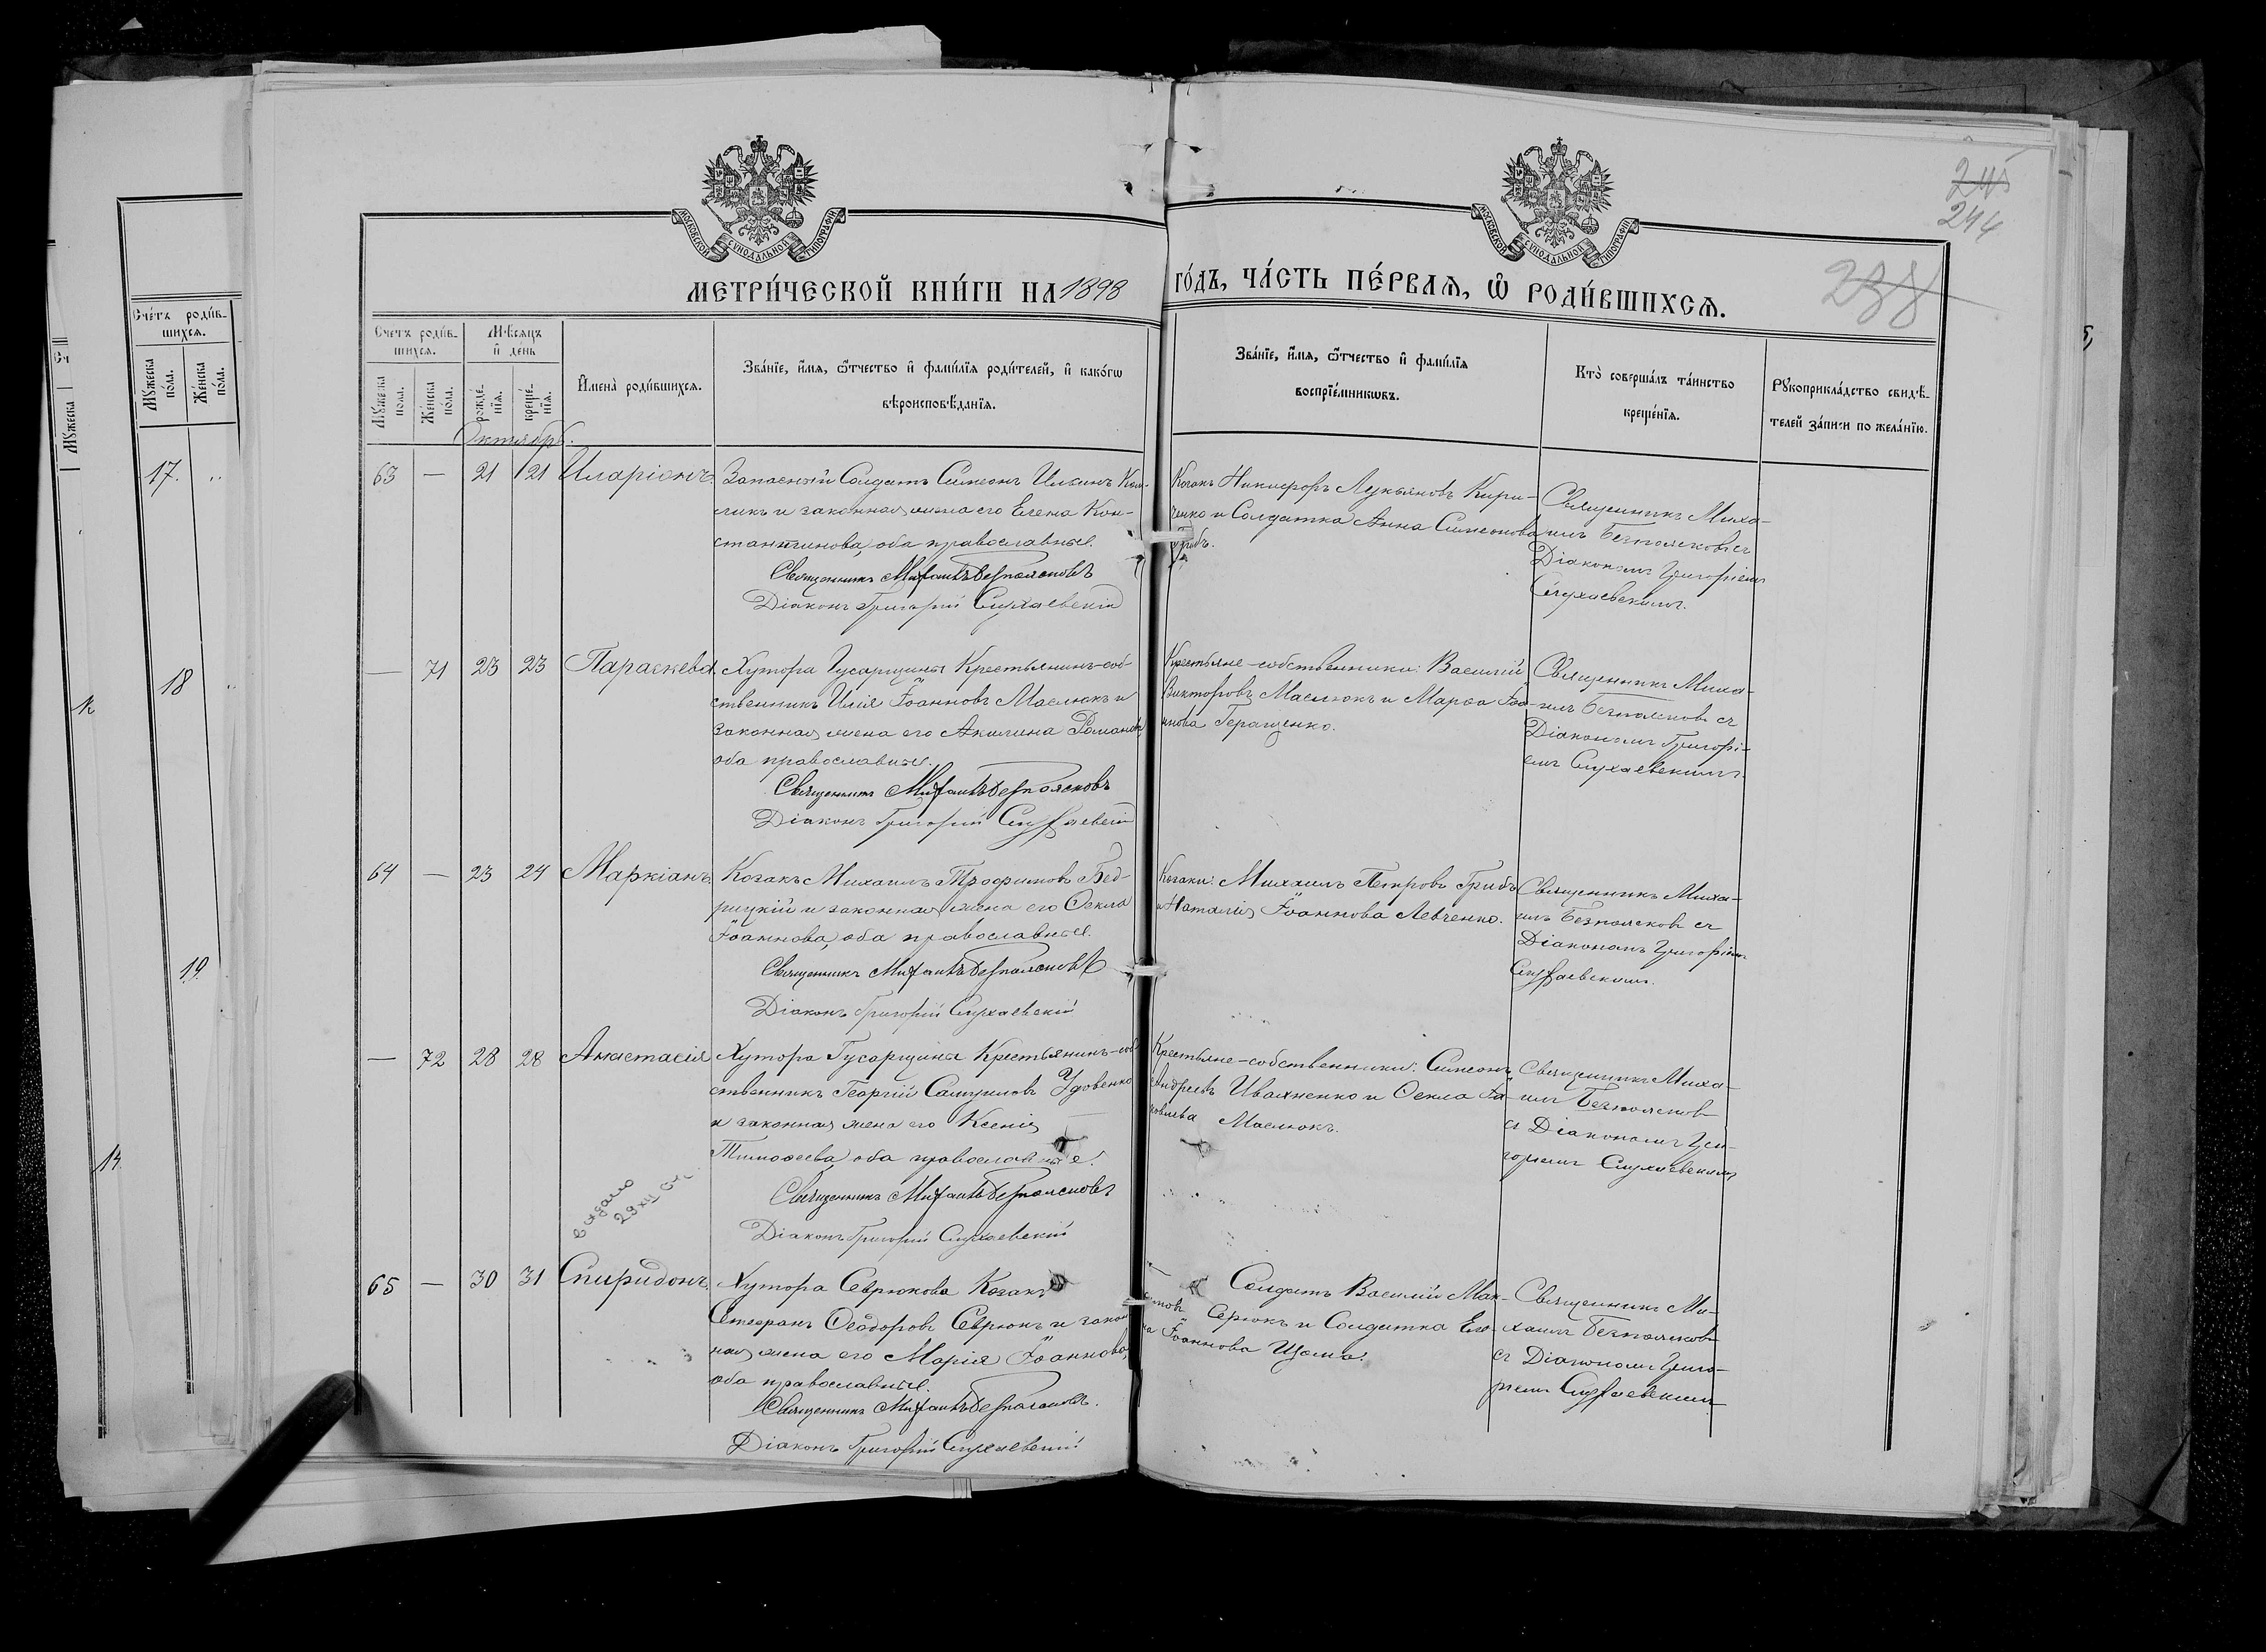 245
244
238
МОСКОВСКОЙ СѴНОДАЛЬНОЙ ТИПОГРАФІИ
МОСКОВСКОЙ СѴНОДАЛЬНОЙ ТИПОГРАФІИ
МЕТРИ́ЧЕСКОЙ КНИ́ГИ НА 1898
ГО́ДЪ, ЧА́СТЬ ПЕ́РВАѦ, Ѽ РОДИ́ВШИХСѦ.
Счетъ роди́в-
шихсѧ.
Мѣсѧцъ
и҆ де́нь
Мꙋжеска
по́ла.
Же́нска
по́ла.
рожде́-
нїѧ.
креще́-
нїѧ.
И҆мена̀ роди́вшихсѧ.
Зва́нїе, и҆́мѧ, ѻ҆́тчество и҆ фами́лїѧ роди́телей, и҆ како́гѡ
вѣроисповѣ́данїѧ.
Зва́нїе, и҆́мѧ, ѻ҆́тчество и҆ фами́лїѧ
воспрїе́мникѡвъ.
Кто̀ соверша́лъ та́инство
креще́нїѧ.
Рꙋкоприкла́дство свидѣ́-
телей за́писи по жела́нїю.
Счетъ роди́в-
шихсѧ.
Мꙋжеска
по́ла.
Же́нска
по́ла.
Мꙋжеска
17.
18
19
14
Октябрь.
63 — 21 21 Иларіонъ.
Запасный Солдатъ Симеонъ Ильинъ
и законная жена его Елена Кон-
стантинова, оба православные.
Священникъ Михаилъ Безпоясковъ
Діаконъ Григорій Слухаевскій
Козакъ Никифоръ Лукьяновъ Кири-
ченко и Солдатка Анна Симеонова
Грибъ.
Священникъ Миха-
илъ Безпоясковъ съ
Діакономъ Григоріемъ
Слухаевскимъ.
— 71 23 23 Параскева
Хутора Гусарщины Крестьянинъ-соб-
ственникъ Илія Іоанновъ Маслюкъ и
законная жена его Акилина Романова,
оба православные.
Священникъ Михаилъ Безпоясковъ
Діаконъ Григорій Слухаевскій
Крестьяне-собственники: Василій
Викторовъ Маслюкъ и Марѳа Іоа-
ннова Геращенко.
Священникъ Миха-
илъ Безпоясковъ съ
Діакономъ Григорі-
емъ Слухаевскимъ.
64 — 23 24 Маркіанъ.
Козакъ Михаилъ Трофимовъ Бед-
рицкій и законная жена его Ѳекла
Іоаннова, оба православные.
Священникъ Михаилъ Безпоясковъ
Діаконъ Григорій Слухаевскій
Козаки: Михаилъ Петровъ Грибъ
и Наталія Іоаннова Левченко.
Священникъ Миха-
илъ Безпоясковъ съ
Діакономъ Григоріемъ
Слухаевскимъ.
— 72 28 28 Анастасія
Хутора Гусарщины Крестьянинъ-соб-
ственникъ Георгій Самуиловъ Удовенко
и законная жена его Ксенія
Тимоѳеева, оба православные.
Священникъ Михаилъ Безпоясковъ
Діаконъ Григорій Слухаевскій
Крестьяне-собственники: Симеонъ
Андреевъ Ивахненко и Ѳекла Іа-
ковлева Маслюкъ.
Священникъ Миха-
илъ Безпоясковъ
съ Діакономъ Гри-
горіемъ Слухаевскимъ
29 XII
65 — 30 31 Спиридонъ.
Хутора Севрюкова Козакъ
Стефанъ Ѳеодоровъ Севрюкъ и закон-
ная жена его Марія Іоаннова,
оба православные.
Священникъ Михаилъ Безпоясковъ.
Діаконъ Григорій Слухаевскій
Солдатъ Василій Мак-
симовъ Серюкъ и Солдатка Еле-
на Іоаннова
Священникъ Ми-
хаилъ Безпоясковъ
съ Діакономъ Григо-
ріемъ Слухаевскимъ